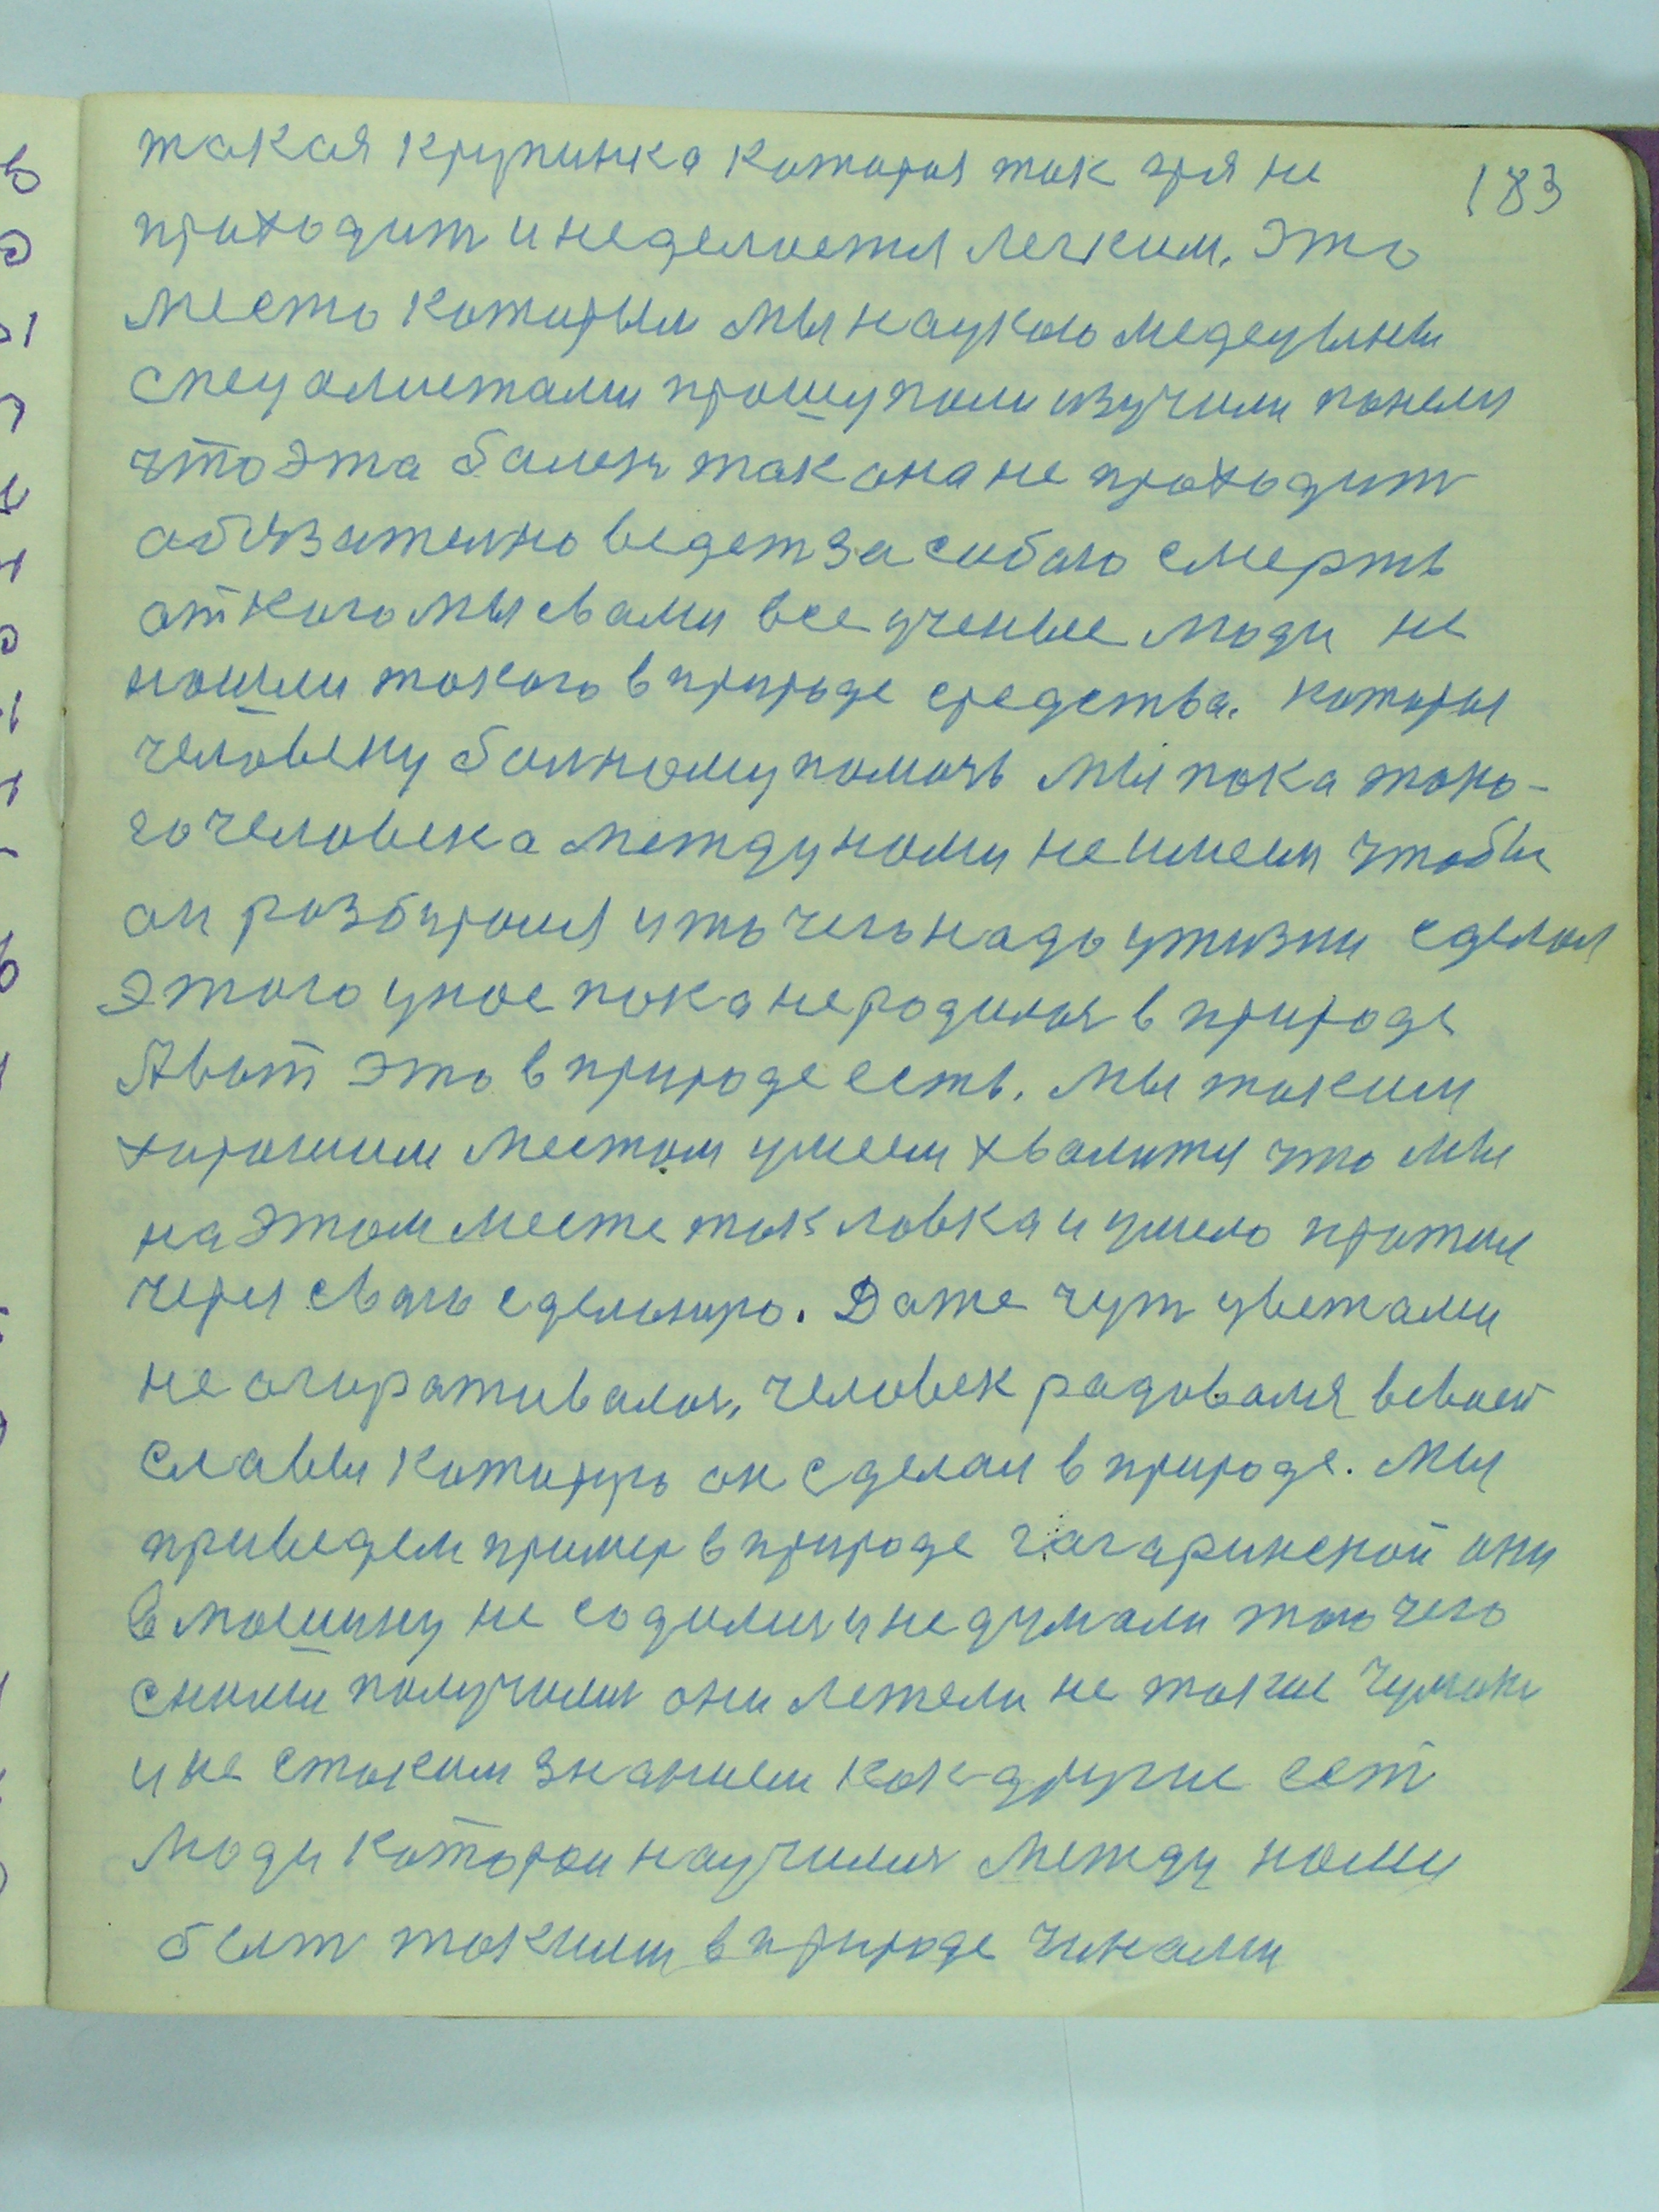 183
такая крупинка которая так зря не
проходит и неделается легким. Это
место которым мы наукаю медецыны
спецалистами прощупали изучили понели
что эта балезн так она не проходит
абизателно ведет за сабою смерть
от кого мы свами все ученые люди не
нашли такого в природе средства. которая
человеку балному помочь мы пока тако-
го человека между нами не имеем чтобы
он розбирался и то чего надо у жизни сделал
этого у нас пока не родился в природе
Авот это в природе есть. Мы таким
хорошим местом умеем хвалится что мы
на этом месте так ловка и умело прошли
через сваю сделыную. Даже чут цветами
не агораживался, человек радовался всвоей
славы которую он сделал в природе. Мы
приведем пример в природе гагаринской они
в машину не содились и не думали того чего
сними получилися они летели не такие
и не стаким знанием как другие ест
люди которои научилися между нами
быт такими в природе чинами